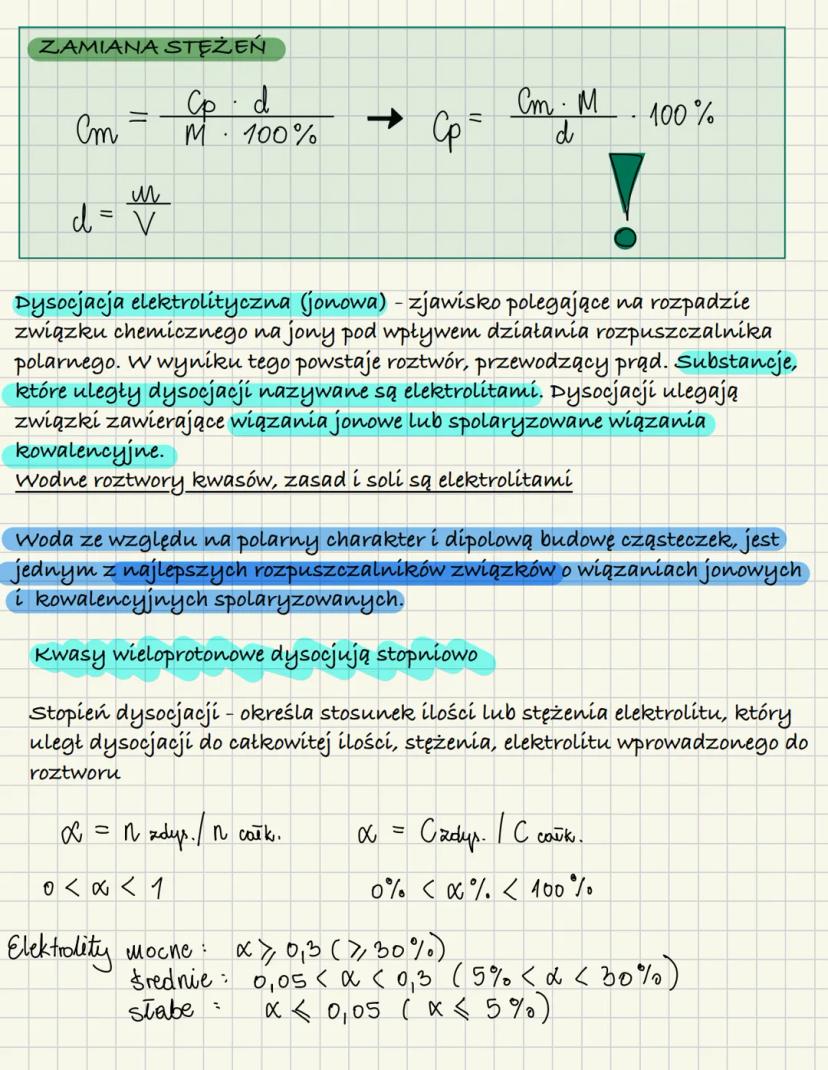 ZAMIANA STĘŻEŃ
Cm = Cp · d / M · 100% → Cp = Cm · M / d · 100%
d = m / V
!
Dysocjacja elektrolityczna (jonowa) - zjawisko polegające na rozpadzie
związku chemicznego na jony pod wpływem działania rozpuszczalnika
polarnego. W wyniku tego powstaje roztwór, przewodzący prąd. Substancje,
które uległy dysocjacji nazywane są elektrolitami. Dysocjacji ulegają
związki zawierające wiązania jonowe lub spolaryzowane wiązania
kowalencyjne.
Wodne roztwory kwasów, zasad i soli są elektrolitami
Woda ze względu na polarny charakter i dipolową budowę cząsteczek, jest
jednym z najlepszych rozpuszczalników związków o wiązaniach jonowych
i kowalencyjnych spolaryzowanych.
Kwasy wieloprotonowe dysocjują stopniowo
Stopień dysocjacji - określa stosunek ilości lub stężenia elektrolitu, który
uległ dysocjacji do całkowitej ilości, stężenia, elektrolitu wprowadzonego do
roztworu
α = n zdys. / n całk. α = C zdys. / C całk.
0 < α < 1 0% < α% < 100%
Elektrolity mocne: α ⩾ 0,3 (⩾ 30%)
średnie: 0,05 < α < 0,3 (5% < α < 30%)
słabe: α ⩽ 0,05 (α ⩽ 5%)